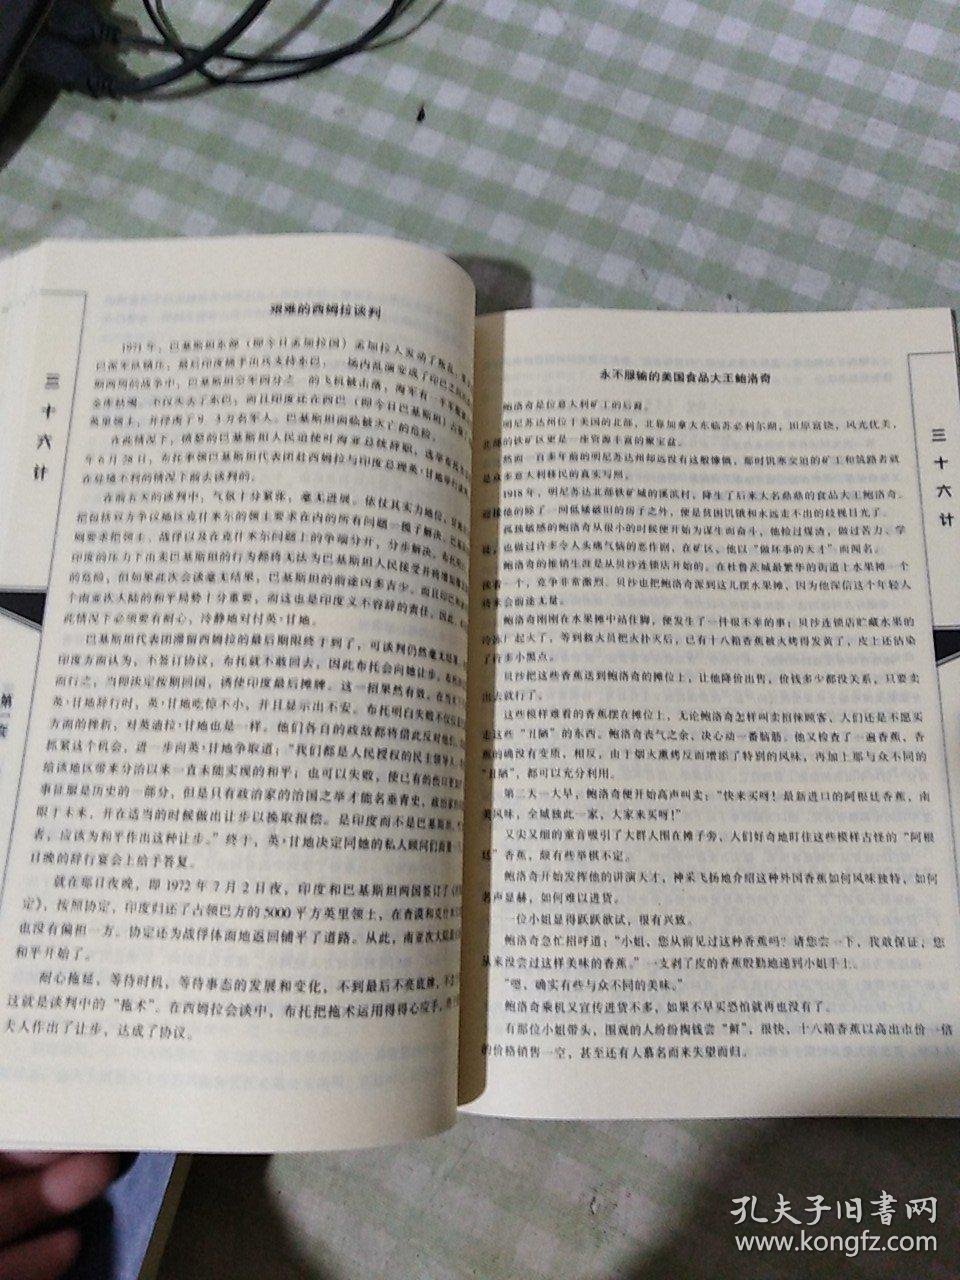 艰难的西姆拉谈判
1971年，巴基斯坦东部（即今日孟加拉国）孟加拉人发动了叛乱，
巴派军队镇压，最后印度插手出兵支持东巴，一场内乱演变成了印巴之间的
期两周的战争中，巴基斯坦空军四分之一的飞机被击落，海军有一半
金库枯竭，不仅失去了东巴，而且印度还在西巴（即今日巴基斯坦）占领
英里领土，并俘虏了9．3万名军人。巴基斯坦面临被灭亡的危险。
在此情况下，愤怒的巴基斯坦人民迫使叶海亚总统辞职，选举布托为
年6月28日，布托率领巴基斯坦代表团赴西姆拉与印度总理英·甘地举行谈判
在身处不利的情况下前去谈判的。
在前五天的谈判中，气氛十分紧张，毫无进展。依仗其实力地位，甘地
把包括双方争议地区克什米尔的领土要求在内的所有问题一揽子解决。
则要求把领土、战俘以及在克什米尔问题上的争端分开，分步解决。布托
印度的压力下出卖巴基斯坦的行为都将无法为巴基斯坦人民接受并将增加
的危险，但如果此次会谈毫无结果，巴基斯坦的前途凶多吉少。而且印巴
个南亚次大陆的和平局势十分重要，而这也是印度义不容辞的责任。因此，
此情况下必须要有耐心，冷静地对付英·甘地。
巴基斯坦代表团滞留西姆拉的最后期限终于到了，可谈判仍然毫无结果。
印度方面认为，不签订协议，布托就不敢回去，因此布托会向她让步。布托
而行之，当即决定按期回国，诱使印度最后摊牌。这一招果然有效。在当
英·甘地辞行时，英·甘地吃惊不小，并且显示出不安。布托明白失败不仅
方面的挫折，对英迪拉·甘地也是一样。他们各自的政敌都将借此反对他们，
抓紧这个机会，进一步向英·甘地争取道：“我们都是人民授权的民主领导人，
给该地区带来分治以来一直未能实现的和平；也可以失败，使已有的伤口更加
事征服是历史的一部分，但是只有政治家的治国之举才能名垂青史，政治家
眼于未来，并在适当的时候做出让步以换取报偿。是印度而不是巴基斯坦，
者，应该为和平作出这种让步。”终于，英·甘地决定同她的私人顾问们商量一
日晚的辞行宴会上给予答复。
就在那日夜晚，即1972年7月2日夜，印度和巴基斯坦两国签订了《
定》，按照协定，印度归还了占领巴方的5000平方英里领土，在查谟和克什米
也没有偏袒一方。协定还为战俘体面地返回铺平了道路。从此，南亚次大陆
和平开始了。
耐心拖延，等待时机，等待事态的发展和变化，不到最后不亮底牌，
这就是谈判中的“拖术”。在西姆拉会谈中，布托把拖术运用得得心应手，
夫人作出了让步，达成了协议。
三十六计
第
永不服输的美国食品大王鲍洛奇
鲍洛奇是位意大利矿工的后裔。
明尼苏达州位于美国的北部，北靠加拿大东临苏必利尔湖，田原富饶，风光优美，
北部的铁矿区更是一座资源丰富的聚宝盆。
然而一百多年前的明尼苏达州却远没有这般慷慨，那时饥寒交迫的矿工和筑路者就
是众多意大利移民的真实写照。
1918年，明尼苏达北部铁矿城的溪滨村，降生了后来大名鼎鼎的食品大王鲍洛奇。
迎接他的除了一间低矮破旧的房子之外，便是贫困饥饿和永远走不出的歧视目光了。
孤独敏感的鲍洛奇从很小的时候便开始为谋生而奋斗，他捡过煤渣，做过苦力、学
徒，也做过许多令人头痛气恼的恶作剧，在矿区，他以“做坏事的天才”而闻名。
鲍洛奇的推销生涯是从贝沙连锁店开始的。在杜鲁茨城最繁华的街道上水果摊一个
挨着一个，竞争非常激烈。贝沙也把鲍洛奇派到这儿摆水果摊，因为他深信这个年轻人
将来会前途无量。
鲍洛奇刚刚在水果摊中站住脚，便发生了一件很不幸的事：贝沙连锁店贮藏水果的
冷冻厂起火了，等到救火员把火扑灭后，已有十八箱香蕉被火烤得发黄了，皮上还沾染
了许多小黑点。
贝沙把这些香蕉送到鲍洛奇的摊位上，让他降价出售，价钱多少都没关系，只要卖
出去就行了。
这些模样难看的香蕉摆在摊位上，无论鲍洛奇怎样叫卖招徕顾客，人们还是不愿买
走这些“丑陋”的东西。鲍洛奇丧气之余，决心动一番脑筋。他又检查了一遍香蕉，香
蕉的确没有变质，相反，由于烟火熏烤反而增添了特别的风味，再加上那与众不同的
“丑陋”，都可以充分利用。
第二天一大早，鲍洛奇便开始高声叫卖：“快来买呀！最新进口的阿根廷香蕉，南
美风味，全城独此一家，大家来买呀！”
又尖又细的童音吸引了大群人围在摊子旁，人们好奇地盯住这些模样古怪的“阿根
廷”香蕉，颇有些举棋不定。
鲍洛奇开始发挥他的讲演天才，神采飞扬地介绍这种外国香蕉如何风味独特，如何
名声显赫，如何难以进货。
一位小姐显得跃跃欲试，很有兴致。
鲍洛奇急忙招呼道：“小姐，您从前见过这种香蕉吗？请您尝一下，我敢保证，您
从来没尝过这样美味的香蕉。”一支剥了皮的香蕉殷勤地递到小姐手上。
“嗯，确实有些与众不同的美味。”
鲍洛奇乘机又宣传进货不多，如果不早买恐怕就再也没有了。
有那位小姐带头，围观的人纷纷掏钱尝“鲜”，很快，十八箱香蕉以高出市价一倍
的价格销售一空，甚至还有人慕名而来失望而归。
三十六计
孔夫子旧书网
www.kongfz.com